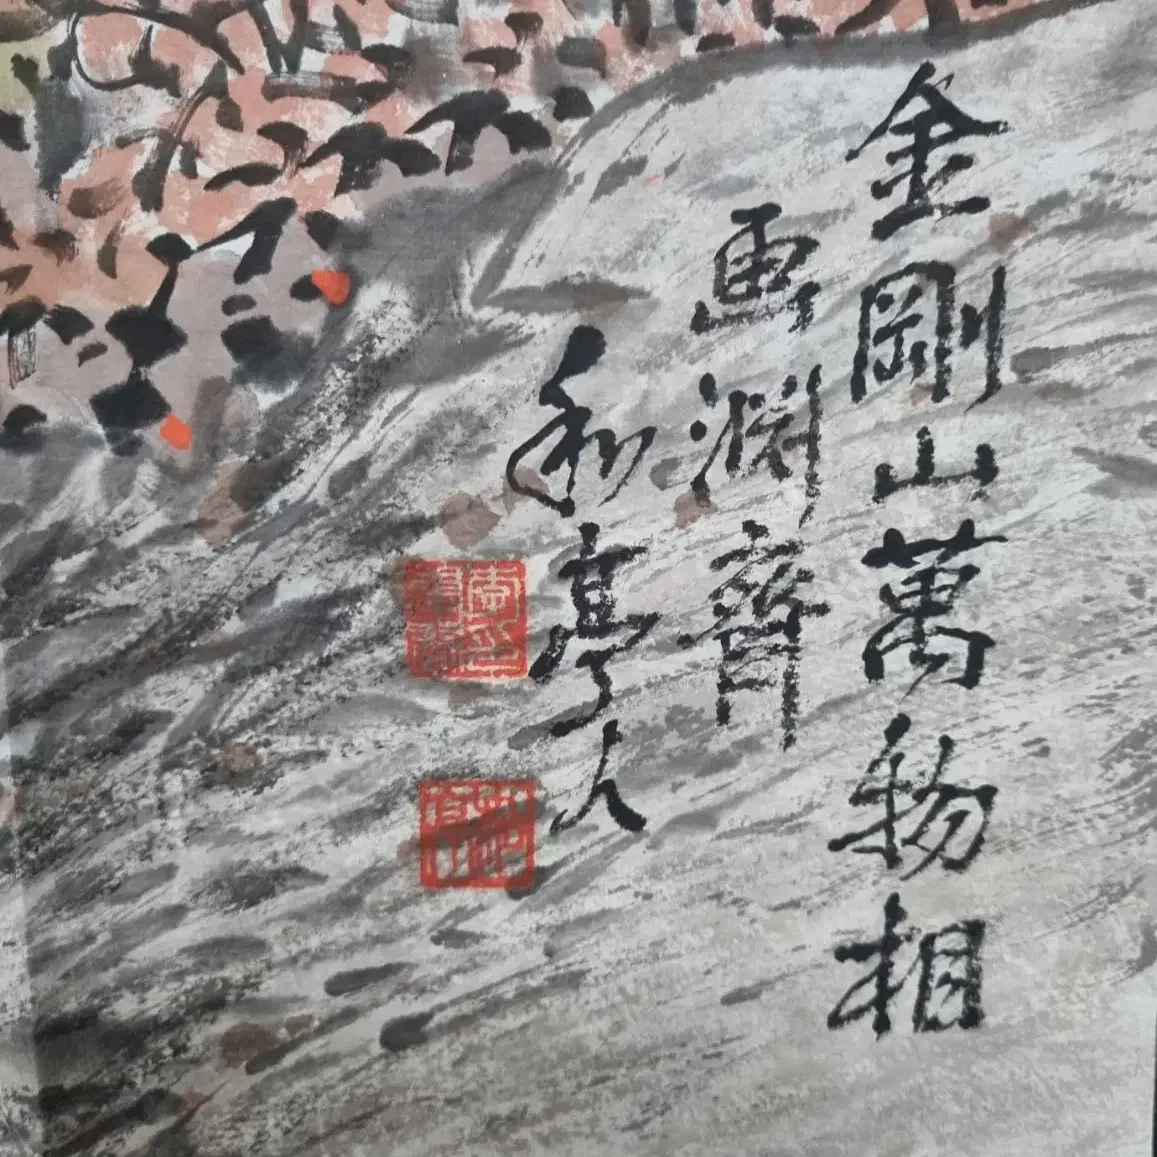 金剛山萬物相
畫淵齊
和亭人